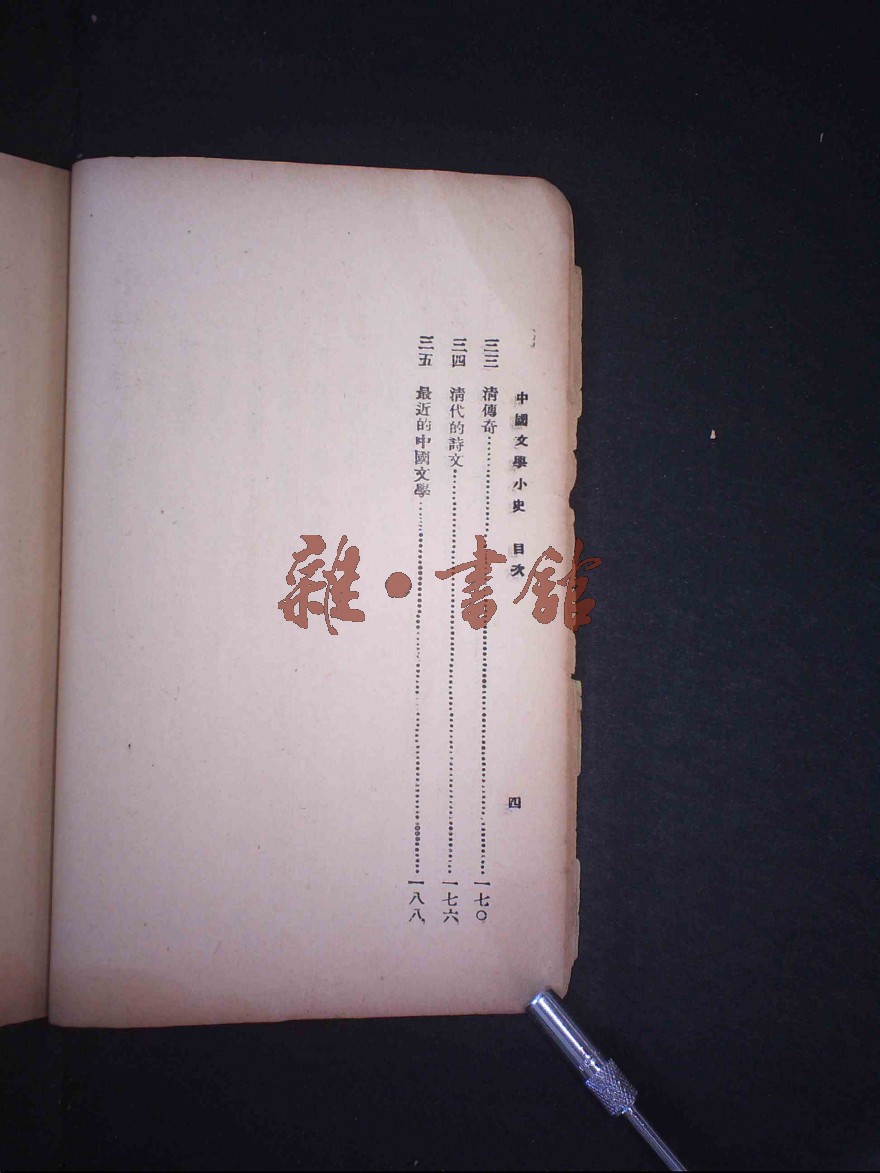 中國文學小史　目次
四
三三　清傳奇……一七〇
三四　清代的詩文……一七六
三五　最近的中國文學……一八八
雜·書館